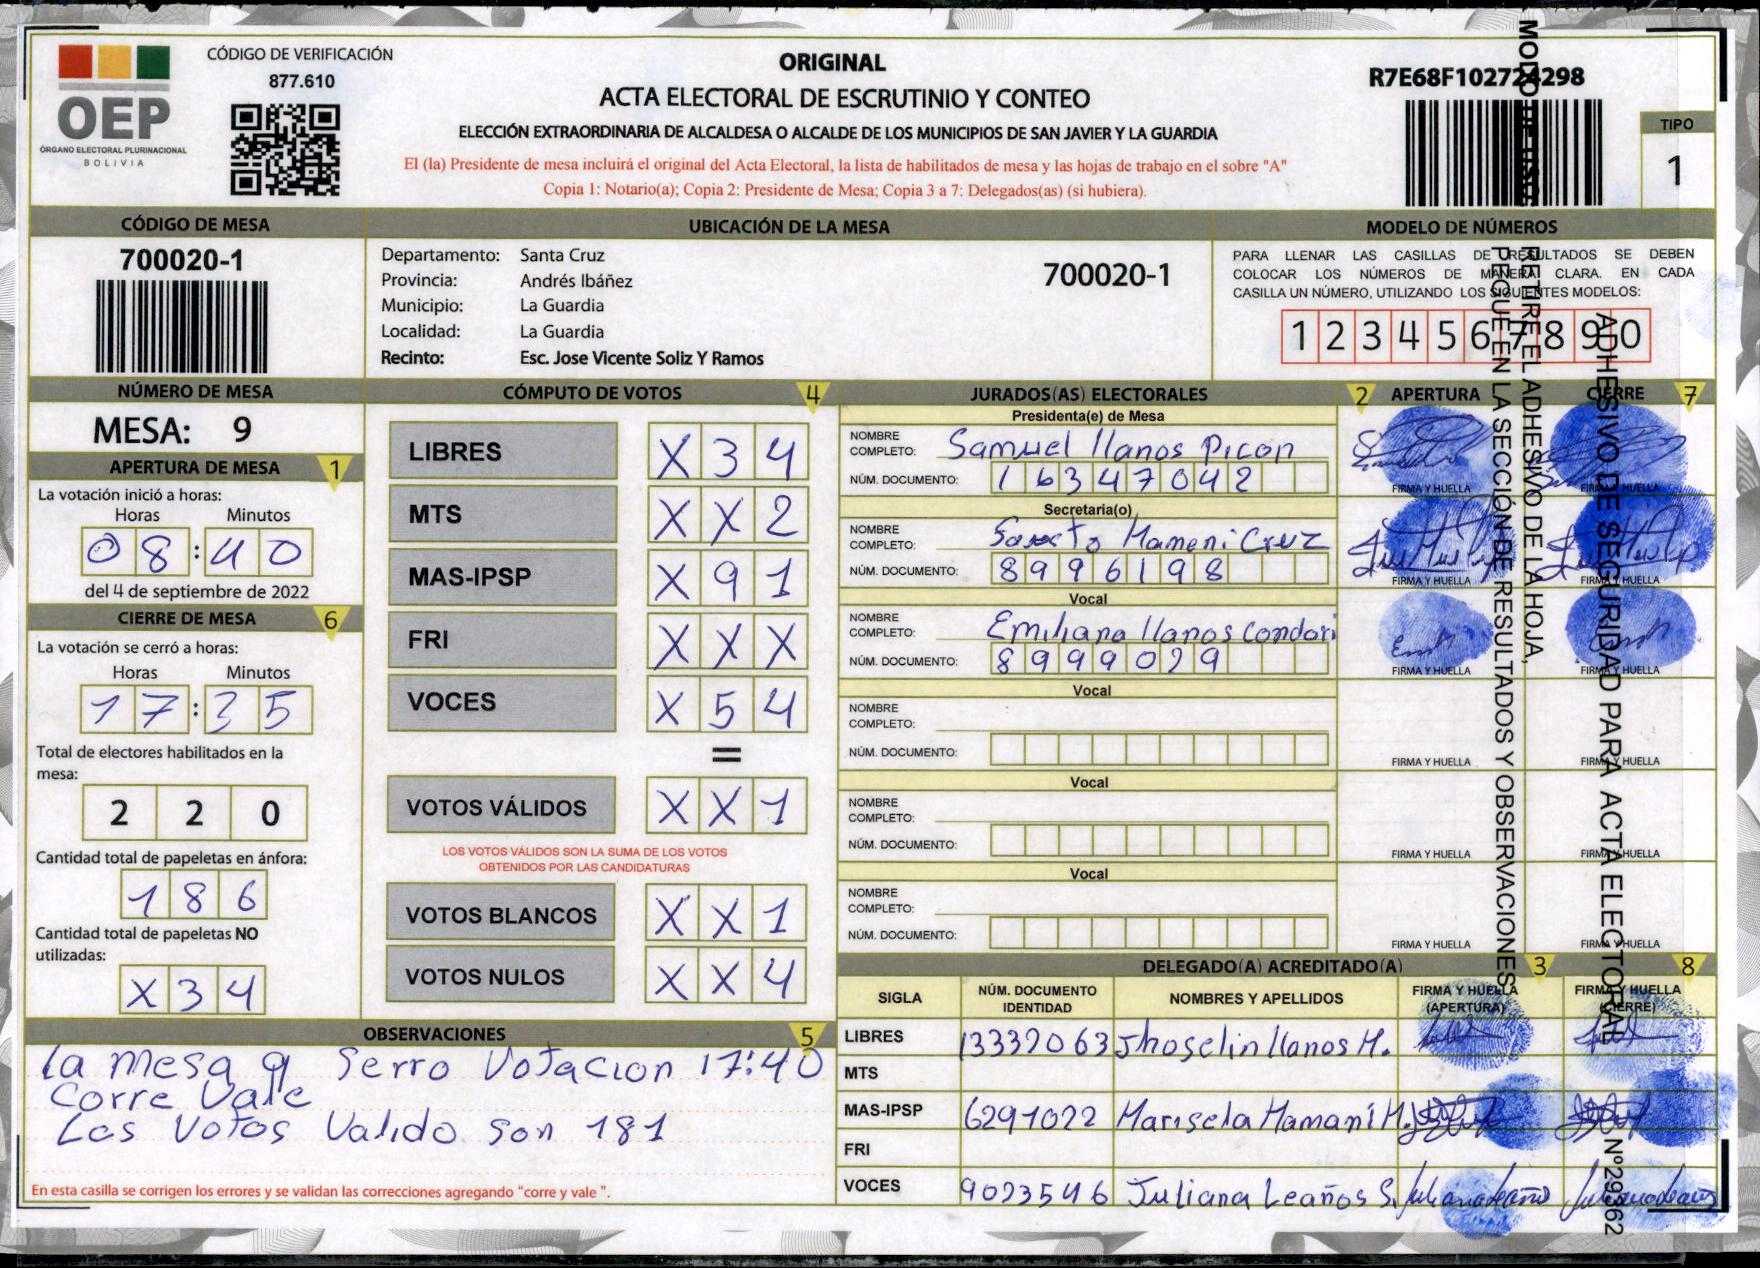 CÓDIGO DE VERIFICACIÓN
877.610
OEP
ÓRGANO ELECTORAL PLURINACIONAL
BOLIVIA
ORIGINAL
ACTA ELECTORAL DE ESCRUTINIO Y CONTEO
ELECCIÓN EXTRAORDINARIA DE ALCALDESA O ALCALDE DE LOS MUNICIPIOS DE SAN JAVIER Y LA GUARDIA
El (la) Presidente de mesa incluirá el original del Acta Electoral, la lista de habilitados de mesa y las hojas de trabajo en el sobre "A"
Copia 1: Notario(a); Copia 2: Presidente de Mesa; Copia 3 a 7: Delegados(as) (si hubiera).
R7E68F102724298
TIPO
1
CÓDIGO DE MESA
700020-1
UBICACIÓN DE LA MESA
Departamento: Santa Cruz
Provincia: Andrés Ibáñez
Municipio: La Guardia
Localidad: La Guardia
Recinto: Esc. Jose Vicente Soliz Y Ramos
700020-1
MODELO DE NÚMEROS
PARA LLENAR LAS CASILLAS DE RESULTADOS SE DEBEN
COLOCAR LOS NÚMEROS DE MANERA CLARA. EN CADA
CASILLA UN NÚMERO, UTILIZANDO LOS SIGUIENTES MODELOS:
1 2 3 4 5 6 7 8 9 0
NÚMERO DE MESA
MESA: 9
APERTURA DE MESA 1
La votación inició a horas:
Horas Minutos
08:40
del 4 de septiembre de 2022
CIERRE DE MESA 6
La votación se cerró a horas:
Horas Minutos
17:35
Total de electores habilitados en la
mesa:
2 2 0
Cantidad total de papeletas en ánfora:
1 8 6
Cantidad total de papeletas NO
utilizadas:
X 3 4
CÓMPUTO DE VOTOS 4
LIBRES X 3 4
MTS X X 2
MAS-IPSP X 9 1
FRI X X X
VOCES X 5 4
=
VOTOS VÁLIDOS X X 1
LOS VOTOS VÁLIDOS SON LA SUMA DE LOS VOTOS
OBTENIDOS POR LAS CANDIDATURAS
VOTOS BLANCOS X X 1
VOTOS NULOS X X 4
OBSERVACIONES 5
La mesa 9 Serro Votacion 17:40
Corre Vale
Los Votos Valido son 181
En esta casilla se corrigen los errores y se validan las correcciones agregando "corre y vale ".
JURADOS(AS) ELECTORALES 2 APERTURA CIERRE 7
Presidenta(e) de Mesa
NOMBRE
COMPLETO: Samuel llanos Picon
NÚM. DOCUMENTO: 16347042
FIRMA Y HUELLA FIRMA Y HUELLA
Secretaria(o)
NOMBRE
COMPLETO: Mameni Cruz
NÚM. DOCUMENTO: 8996198
FIRMA Y HUELLA FIRMA Y HUELLA
Vocal
NOMBRE
COMPLETO: Emiliana llanos Condori
NÚM. DOCUMENTO: 8999029
FIRMA Y HUELLA FIRMA Y HUELLA
Vocal
NOMBRE
COMPLETO:
NÚM. DOCUMENTO:
FIRMA Y HUELLA FIRMA Y HUELLA
Vocal
NOMBRE
COMPLETO:
NÚM. DOCUMENTO:
FIRMA Y HUELLA FIRMA Y HUELLA
Vocal
NOMBRE
COMPLETO:
NÚM. DOCUMENTO:
FIRMA Y HUELLA FIRMA Y HUELLA
DELEGADO(A) ACREDITADO(A) 3 8
SIGLA NÚM. DOCUMENTO IDENTIDAD NOMBRES Y APELLIDOS FIRMA Y HUELLA (APERTURA) FIRMA Y HUELLA (CIERRE)
LIBRES 13332063 Jhoselin llanos M.
MTS
MAS-IPSP 6291022 Marisela Mamani M.
FRI
VOCES 9023546 Juliana Leaños S.
MODO DE USO:
RETIRE EL ADHESIVO DE LA HOJA,
PEGUE EN LA SECCIÓN DE RESULTADOS Y OBSERVACIONES
ADHESIVO DE SEGURIDAD PARA ACTA ELECTORAL
Nº29362